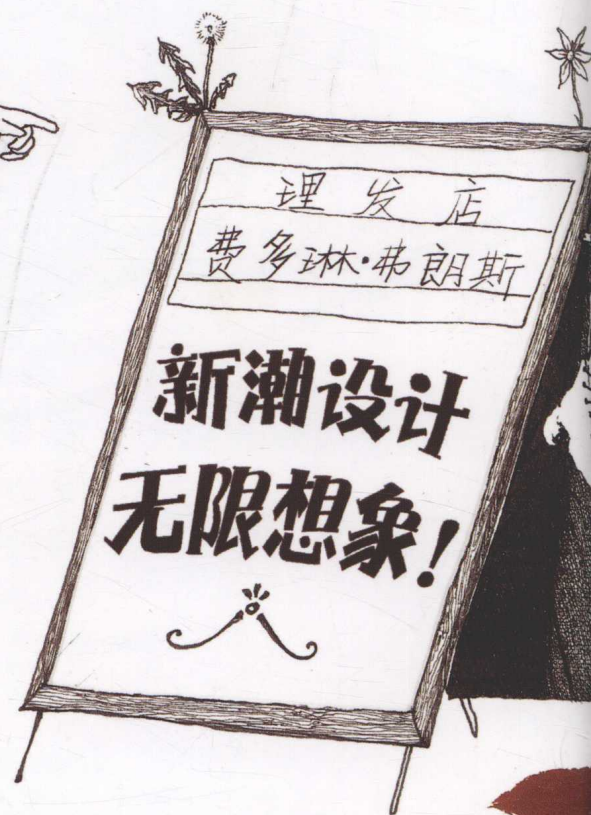 理发店
费多琳·弗朗斯
新潮设计
无限想象!